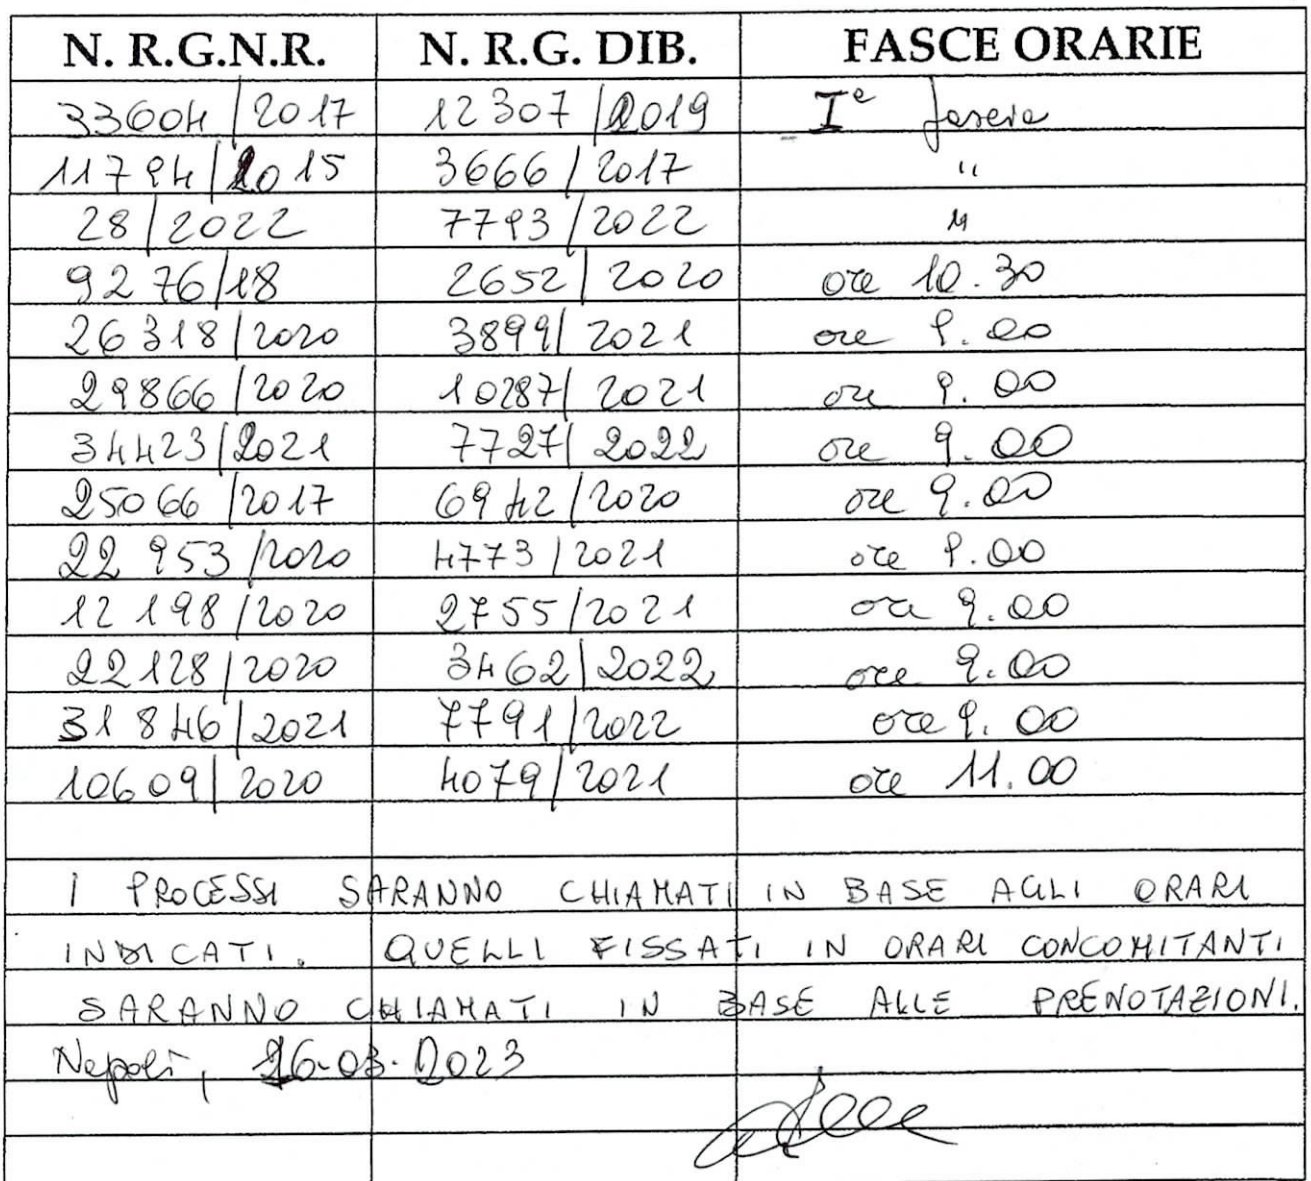 N. R.G.N.R. N. R.G. DIB. FASCE ORARIE
33604/2017 12307/2019 Iª fascia
11794/2015 3666/2017 "
28/2022 7793/2022 "
9276/18 2652/2020 ore 10.30
26318/2020 3899/2021 ore 9.00
29866/2020 10287/2021 ore 9.00
34423/2021 7727/2022 ore 9.00
25066/2017 6942/2020 ore 9.00
22953/2020 4773/2021 ore 9.00
12198/2020 2755/2021 ore 9.00
22128/2020 3462/2022 ore 9.00
31846/2021 7791/2022 ore 9.00
10609/2020 4079/2021 ore 11.00
I PROCESSI SARANNO CHIAMATI IN BASE AGLI ORARI
INDICATI. QUELLI FISSATI IN ORARI CONCOMITANTI
SARANNO CHIAMATI IN BASE ALLE PRENOTAZIONI.
Napoli, 16-03-2023